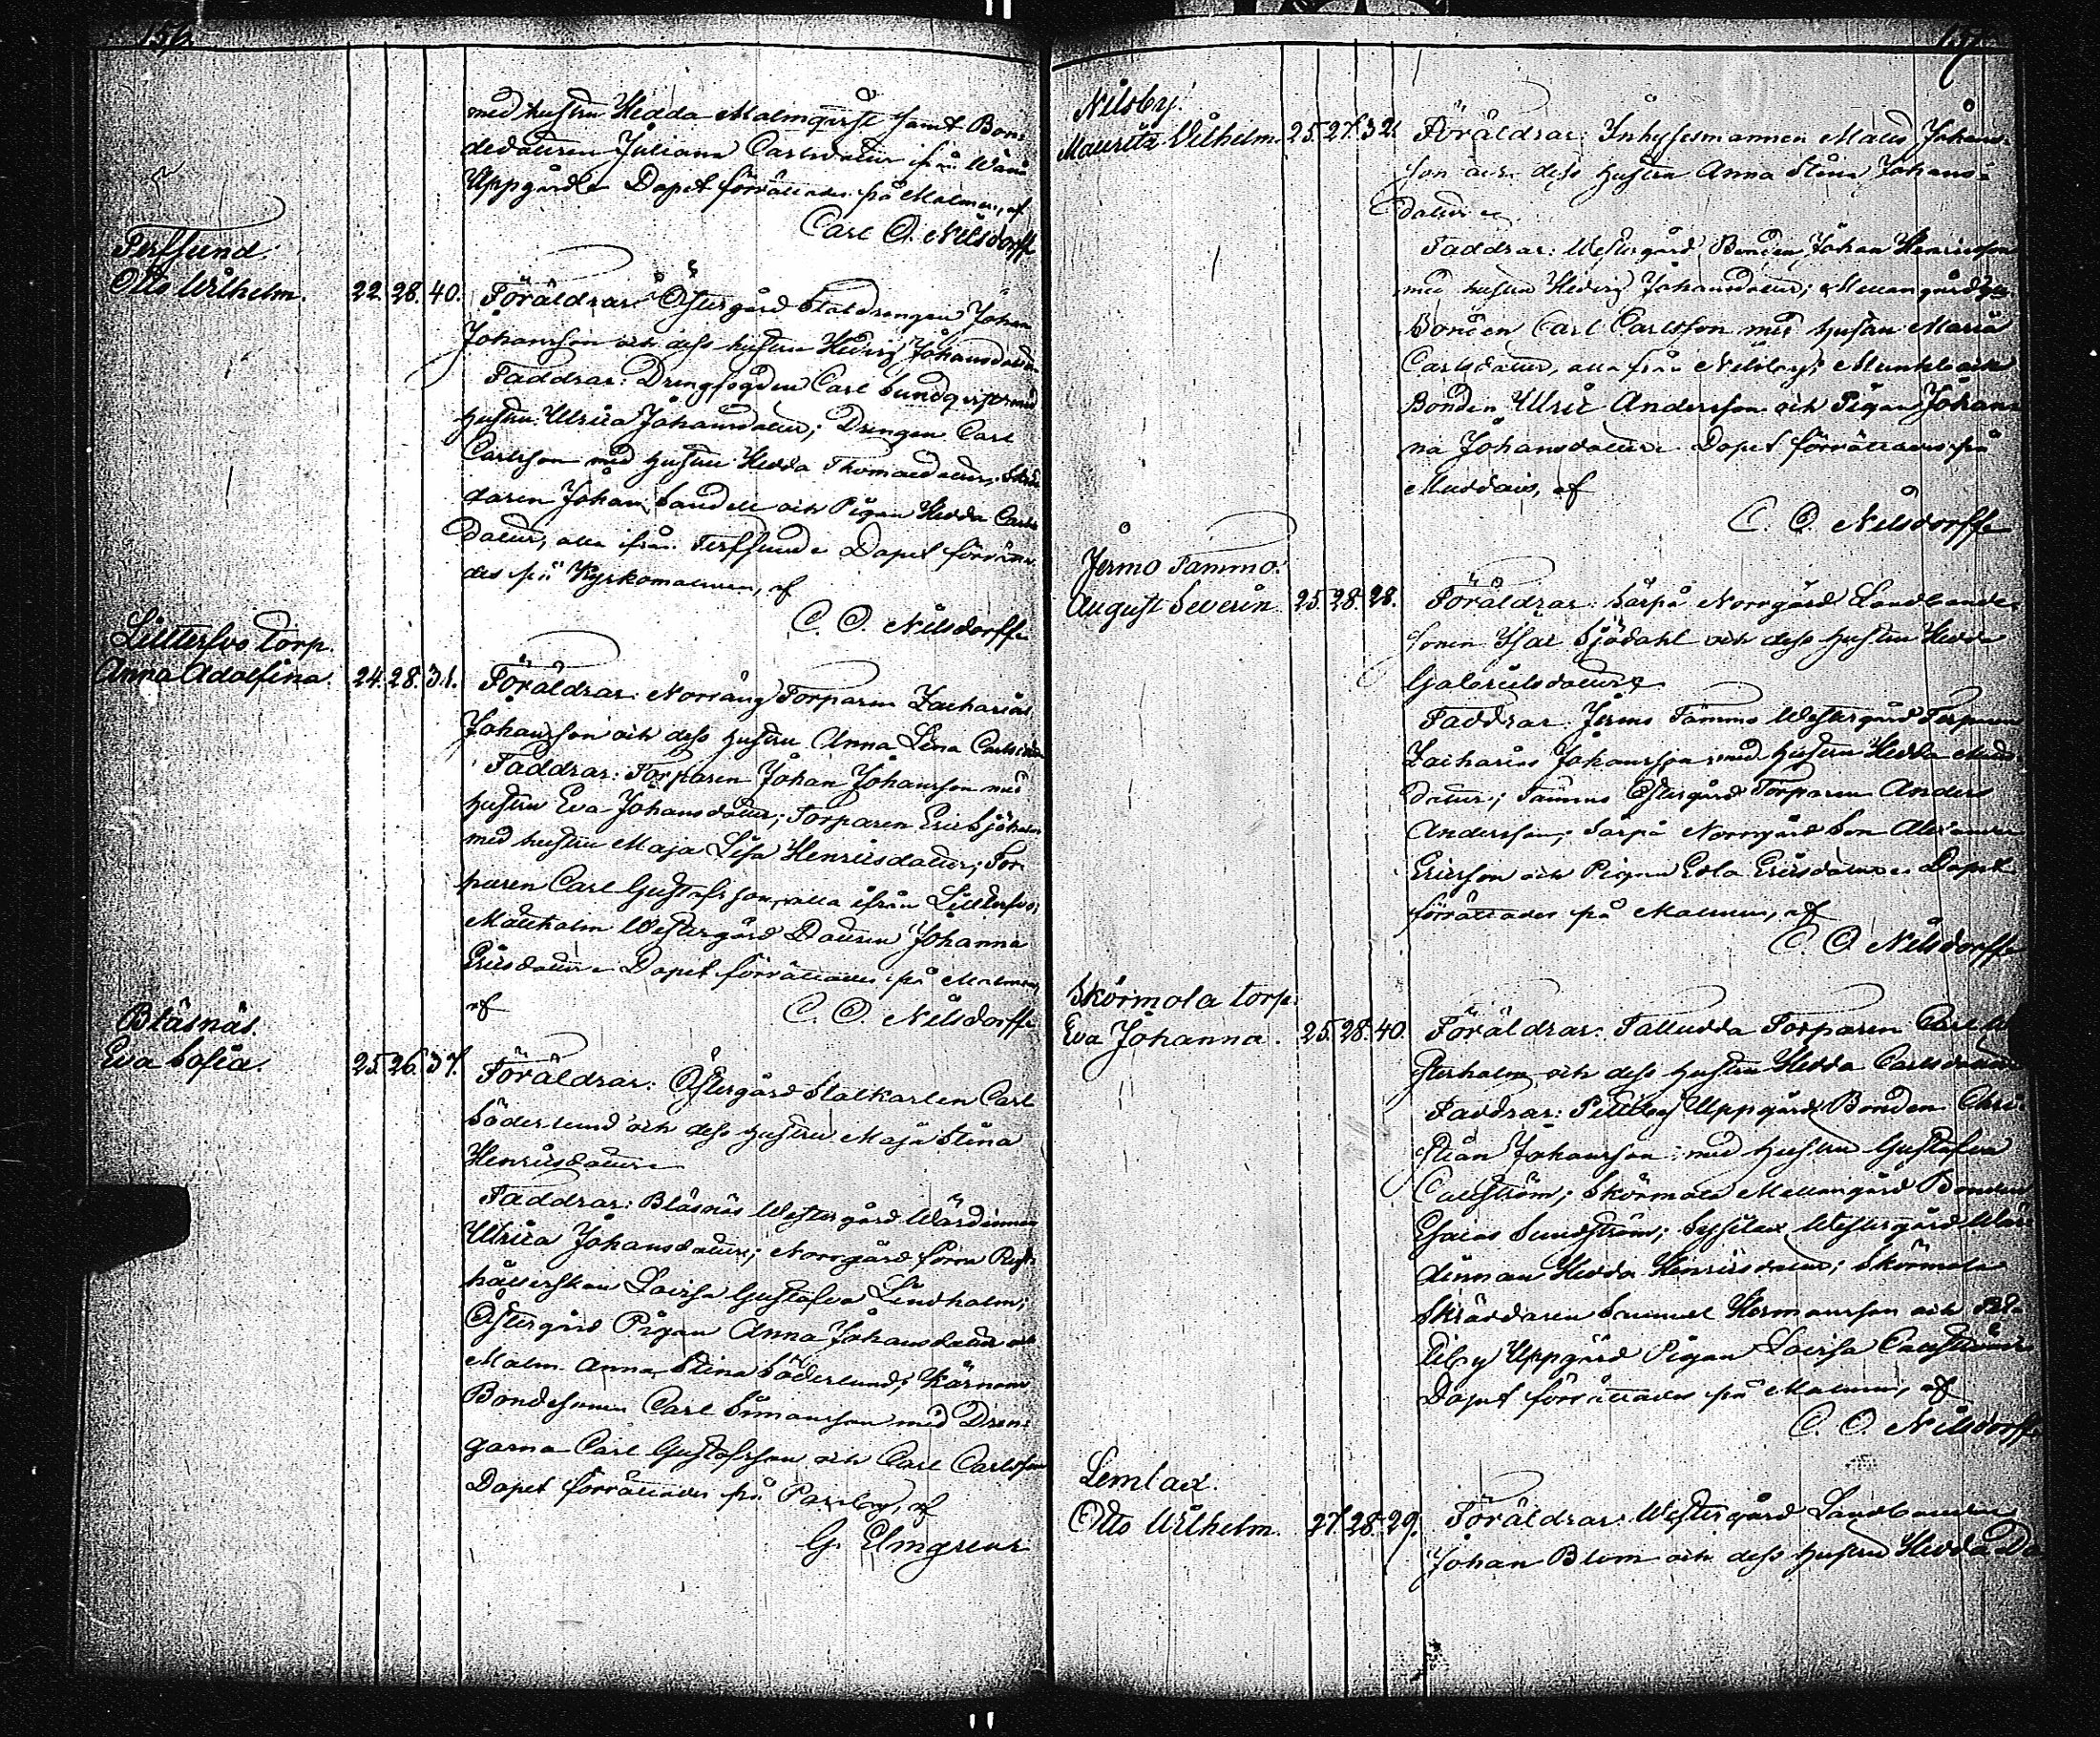 156.
med hustru Hedda Malmqvist samt Bon=
dedottren Juliana Carlsdotter ifrån Wånå
Uppgård. Dopet förrättades på Malmen, af
Carl O. Nilsdorff
Terfsund.
Otto Wilhelm. 22. 28. 40. Föräldrar: Östergård Staldrengen Johan
Johansson och dess hustru Hedvig Johansdotter
Faddrar: Drengfogden Carl Sundqvist med
hustru Ulrica Johansdotter; Drengen Carl
Carlsson med hustru Hedda Thomasdotter,
daren Johan Sandell och Pigan Hedda Carls
dotter, alla ifrån Terfsund. Dopet förrätta=
des på Kyrkomalmen, af
C. O. Nilsdorff
Lilltersvo torp.
Anna Adolfina. 24. 28. 31. Föräldrar: Norräng Torparen Zacharias
Johansson och dess hustru Anna Lena Carlsdotter
Faddrar: Torparen Johan Johansson med
hustru Eva Johansdotter; Torparen Eric Sjöholm
med hustru Maja Lisa Henricsdotter; Tor=
paren Carl Gustafsson, alla ifrån Lilltersvo;
Mattholm Westergård Dottren Johanna
Ericsdotter. Dopet förrättades på Malmen,
af C. O. Nilsdorff
Bläsnäs.
Eva Sofia. 25. 26. 37. Föräldrar: Östergård Stalkarlen Carl
Söderlund och dess hustru Maja Stina
Henricsdotter
Faddrar: Bläsnäs Westergård Wärdinnan
Ulrica Johansdotter; Norrgård förra
hållerskan Lovisa Gustafva Lindholm;
Östergård Pigan Anna Johansdotter och
Malm. Anna Stina Söderlund; Kärnom
Bondesonen Carl Simonsson med Dren=
garna Carl Gustafsson och Carl Carlsson
Dopet förrättades på Parsby, af
G. Elmgren
157.
Nilsby.
Mauritz Wilhelm. 25. 27. 32. Föräldrar: Inhysesmannen Mats Johans=
son och dess hustru Anna Stina Johans=
dotter
Faddrar: Westergård Bonden Johan Henricsson
med hustru Hedvig Johansdotter; Mellangård
Bonden Carl Carlsson med hustru Maria
Carlsdotter, alla från Nilsby; Munkback
Bonden Ulric Andersson och Pigan Johan=
na Johansdotter. Dopet förrättades på
Muddais, af
C. O. Nilsdorff
Jermo Tammo.
August Severin. 25. 28. 28. Föräldrar: Särpå Norrgård Landbonde=
sonen Isac Sjödahl och dess hustru Hedda
Gabrielsdotter
Faddrar: Jermo Tammo Westergård Torparen
Zacharias Johansson med hustru Hedda Mats
dotter; Tammo Östergård Torparen Anders
Andersson; Särpå Norrgård Son Alexander
Ericsson och Pigan Eva Ericsdotter. Dopet
förrättades på Malmen, af
C. O. Nilsdorff
Skärmola torp.
Eva Johanna. 25. 28. 40. Föräldrar: Talludda Torparen Carl
sterholm och dess hustru Hedda Carlsdotter
Faddrar: Pettby Uppgård Bonden Chri=
stian Johansson med hustru Gustafva
Carlström; Skärmola Mellangård Bonden
Esaias Sundström; Sysilax Westergård Wär=
dinnan Hedda Henricsdotter; Skärmola
Skräddaren Samuel Hermansson och Pet=
tby Uppgård Pigan Lovisa Carlström
Dopet förrättades på Malmen, af
C. O. Nilsdorff
Lemlax.
Otto Wilhelm. 27. 28. 29. Föräldrar: Westergård Landbonden
Johan Blom och dess hustru Hedda Da